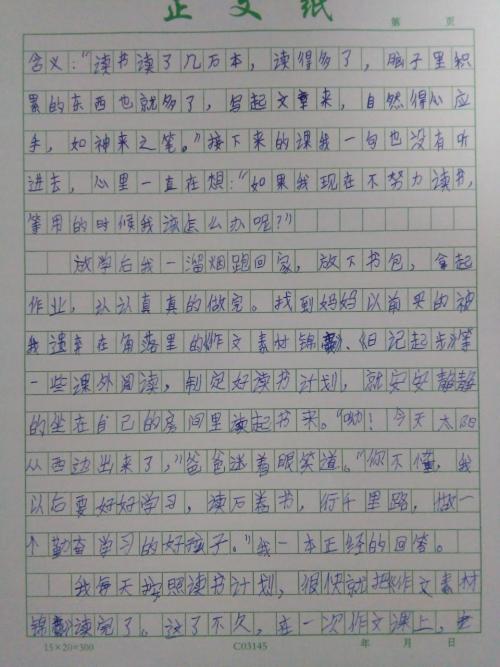 正文纸
第 页
含义："读书读了几万本，读得多了，脑子里积
累的东西也就多了，写起文章来，自然得心应
手，如神来之笔。"接下来的课我一句也没有听
进去，心里一直在想："如果我现在不努力读书，
等用的时候我该怎么办呢？"
放学后我一溜烟跑回家，放下书包，拿起
作业，认认真真的做完。找到妈妈以前买的被
我遗弃在角落里的《作文素材锦囊》、《日记起步》等
一些课外阅读，制定好读书计划，就安安静静
的坐在自己的房间里读起书来。"呦！今天太阳
从西边出来了，"爸爸迷着眼笑道。"你不懂，我
以后要好好学习，读万卷书，行千里路，做一
个勤奋学习的好孩子。"我一本正经的回答。
我每天按照读书计划，很快就把《作文素材
锦囊》读完了。这了不久，在一次作文课上，老
15×20=300
C03145
年 月 日